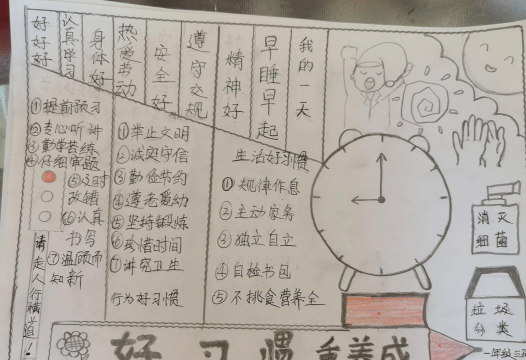 好好好
认真学习
身体好
热爱劳动
安全好
遵守交规
精神好
早睡早起
我的一天
①提前预习
②专心听讲
③勤学苦练
④仔细审题
⑤及时
改错
⑥认真
书写
⑦温顾而
知新
请走人行横道！
①举止文明
②诚实守信
③勤俭节约
④尊老爱幼
⑤坚持锻炼
⑥珍惜时间
⑦讲究卫生
行为好习惯
生活好习惯
①规律作息
②主动家务
③独立自立
④自检书包
⑤不挑食营养全
消灭
细菌
垃圾
分类
好习惯重养成